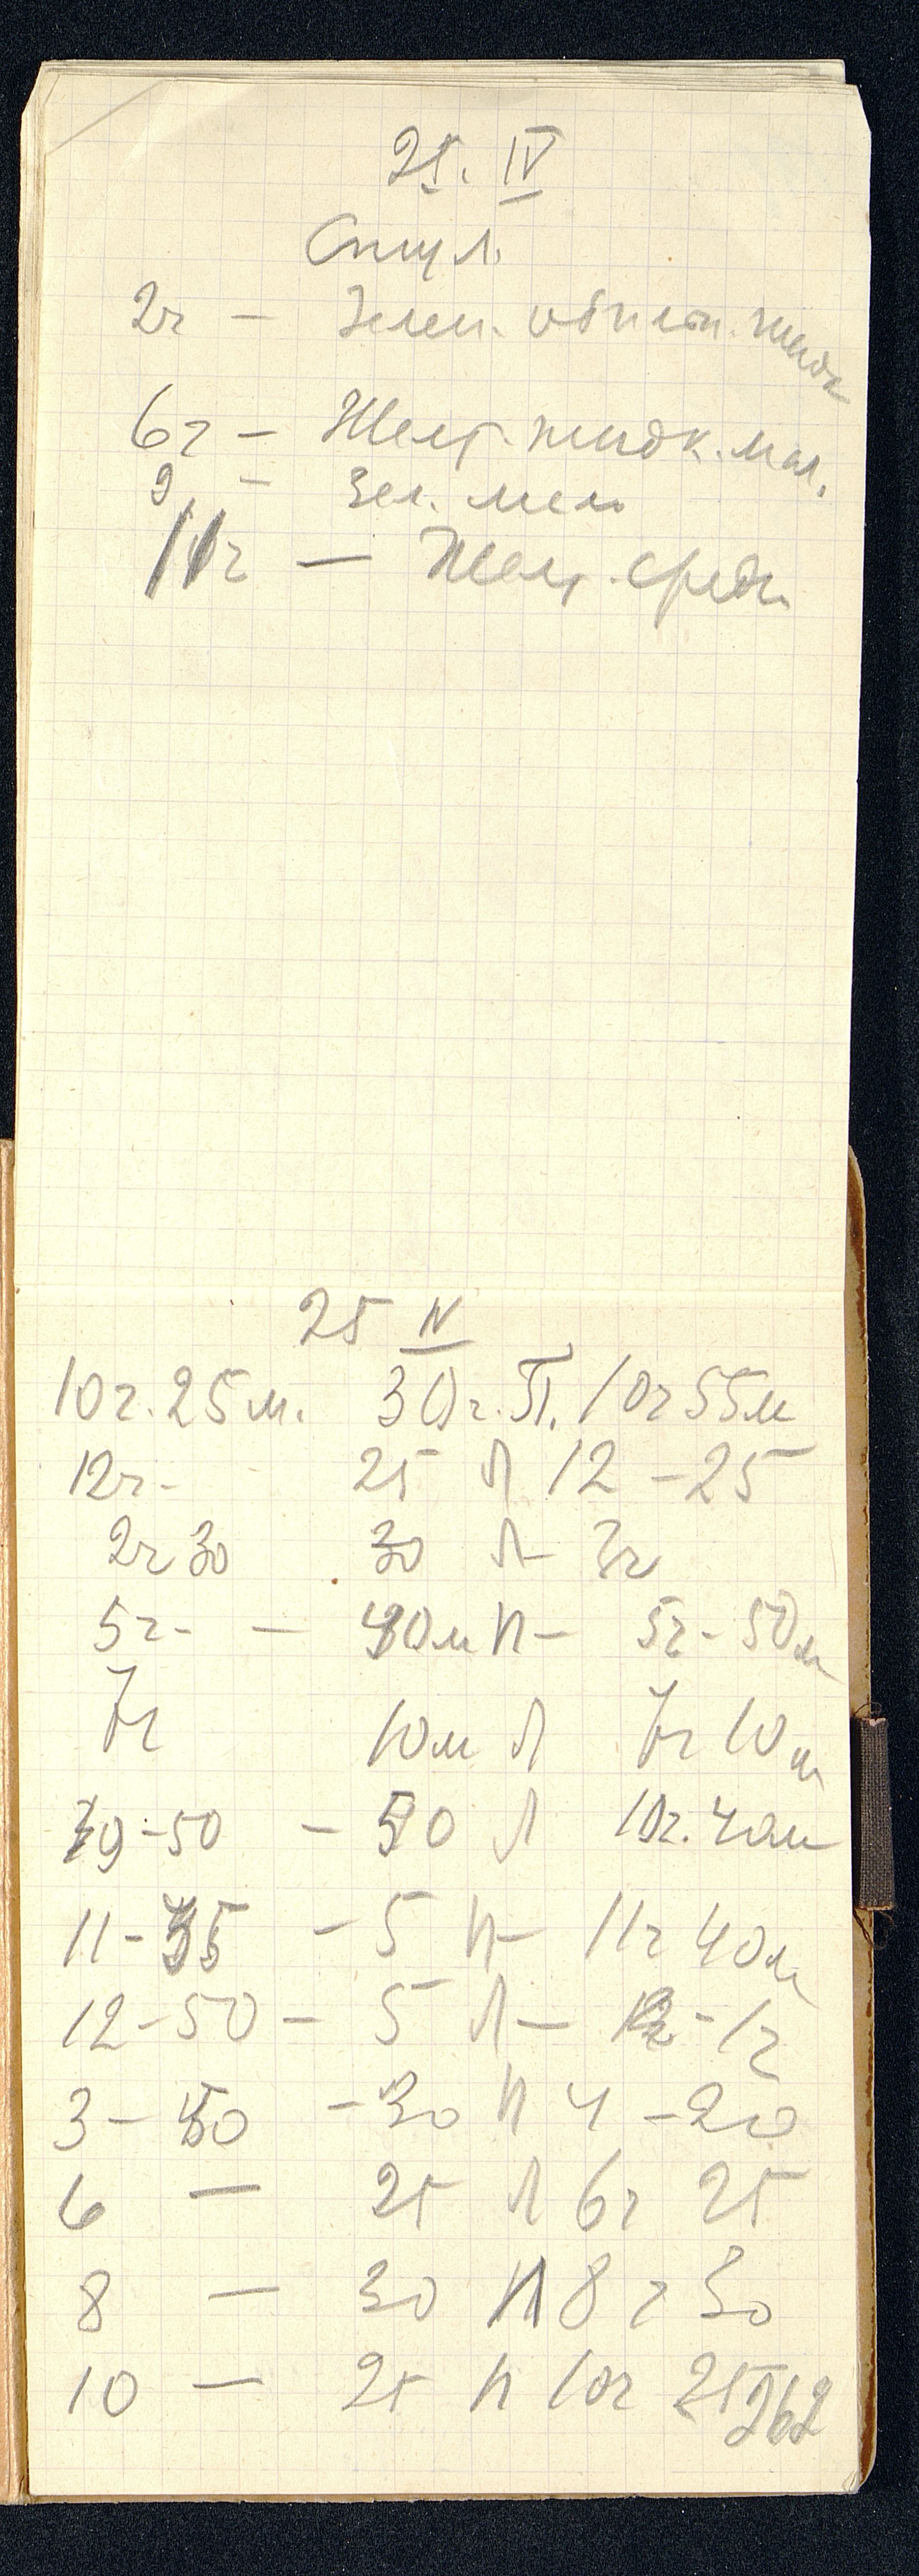 25. IV
Стул.
2ч – Зелен. обильн. жидк
6ч – Желт. жидк. мал.
9 – Зел. мел
11ч – Желт. средн.
25 IV
10ч. 25м. 30г. П. 10ч 55м
12ч. 25 Л 12 – 25
2ч 30 30 Л – 3ч
5ч – 40м П – 5ч – 50м
7ч 10м Л 7ч 10м
9 – 50 – 50 Л 10ч. 40м
11 – 35 – 5 П – 11ч 40м
12 – 50 – 5 Л – 1ч
3 – 50 – 30 П 4 – 20
6 – 25 Л 6ч 25
8 – 30 П 8ч 30
10 – 25 П 10ч 25
262